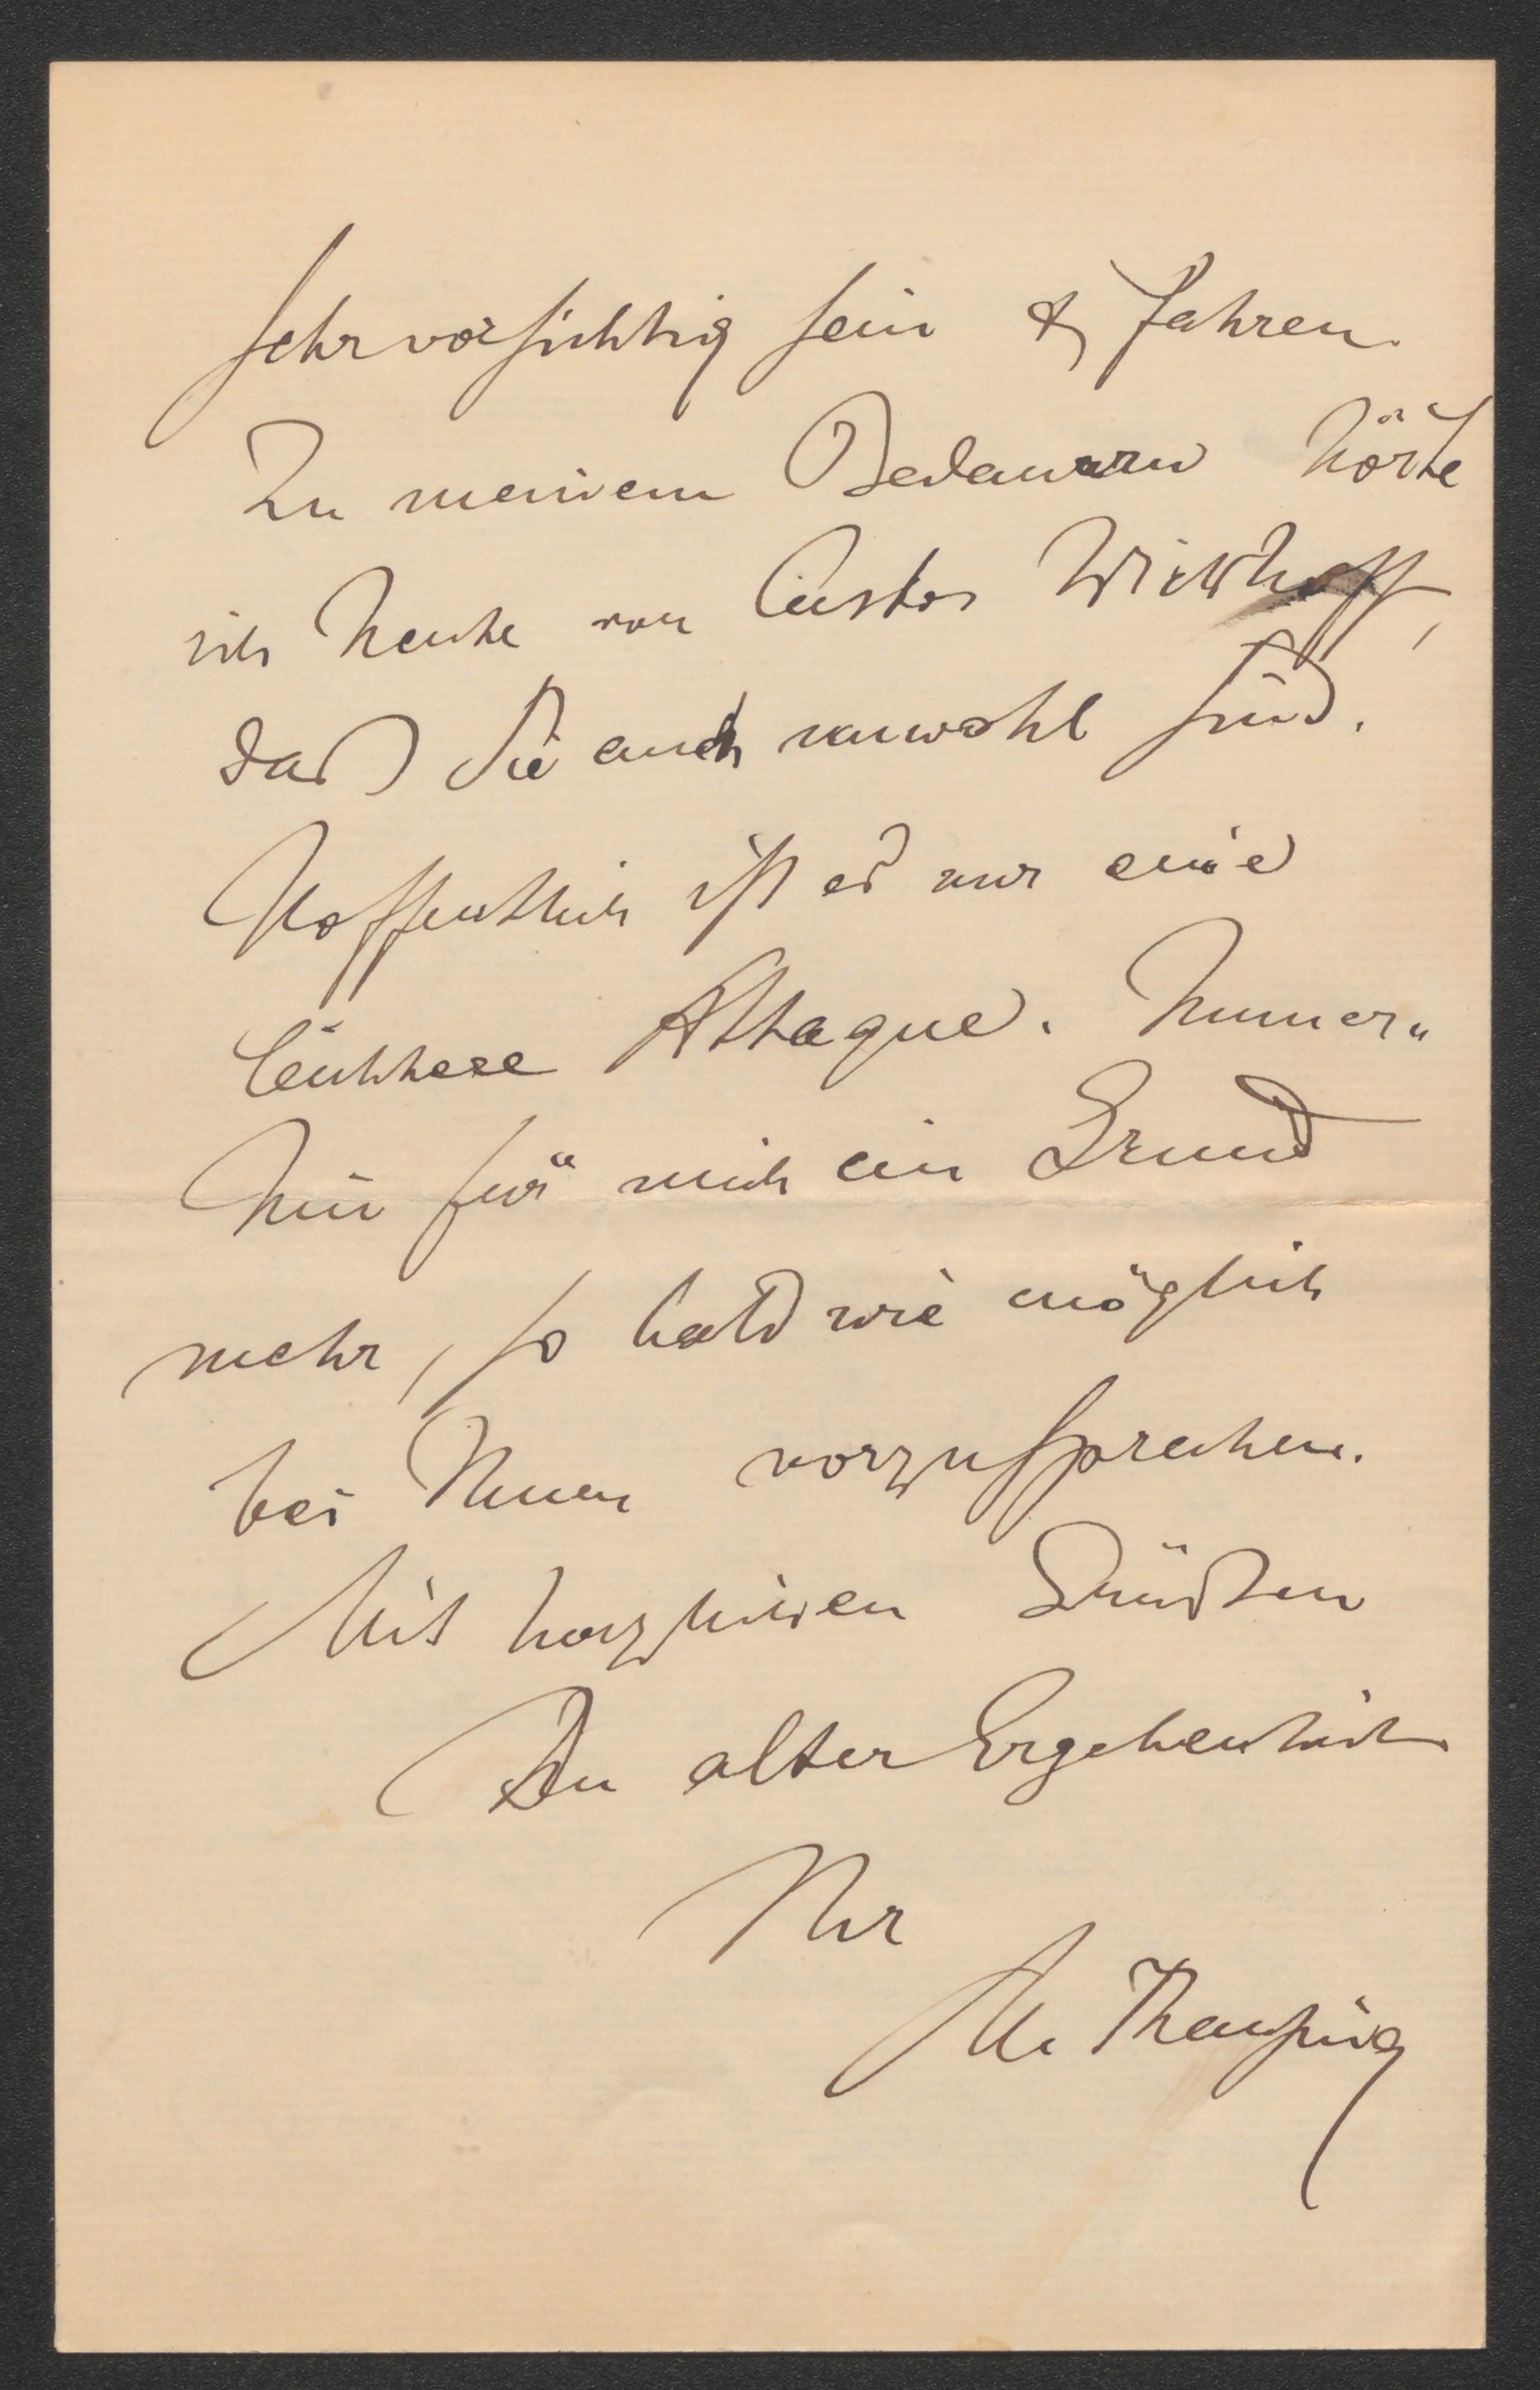 sehr vorsichtig sein & fahren.
Zu meinem Bedauern hörte
ich heute von Custos Wickhoff,
daß Sie auch unwohl sind.
Hoffentlich ist es nur eine
leichtere Attaque. Immer„
hin für mich ein Grund
mehr, so bald wie möglich
bei Ihnen vorzusprechen.
Mit herzlichen Grüßen
In alter Ergebenheit
Ihr
M. Thausing